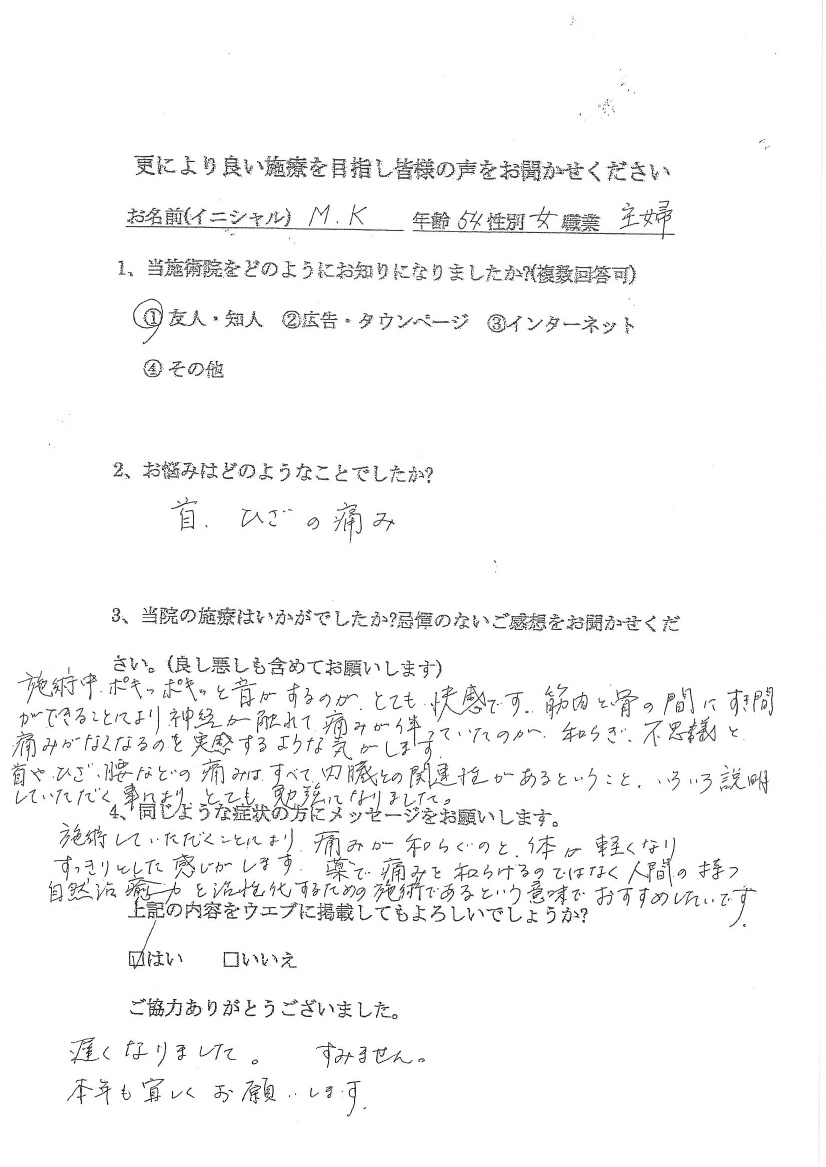 更により良い施療を目指し皆様の声をお聞かせください
お名前(イニシャル) M.K 年齢 54 性別 女 職業 主婦
1、当施術院をどのようにお知りになりましたか?(複数回答可)
①友人・知人 ②広告・タウンページ ③インターネット
④その他
2、お悩みはどのようなことでしたか?
首、ひざの痛み
3、当院の施療はいかがでしたか?忌憚のないご感想をお聞かせくだ
さい。(良し悪しも含めてお願いします)
施術中、ポキッポキッと音がするのが、とても快感です。筋肉と骨の間にすき間
ができることにより神経が触れて痛みが伴っていたのが、和らぎ、不思議と
痛みがなくなるのを実感するような気がします。
首や、ひざ、腰などの痛みは、すべて内臓との関連性があるということ、いろいろ説明
していただく事により、とても勉強になりました。
4、同じような症状の方にメッセージをお願いします。
施術していただくことにより、痛みが和らぐのと、体が軽くなり
すっきりとした感じがします。薬で痛みを和らげるのではなく人間の持つ
自然治癒力を活性化するための施術であるという意味でおすすめしたいです。
上記の内容をウエブに掲載してもよろしいでしょうか?
☑はい □いいえ
ご協力ありがとうございました。
遅くなりました。 すみません。
本年も宜しくお願いします。